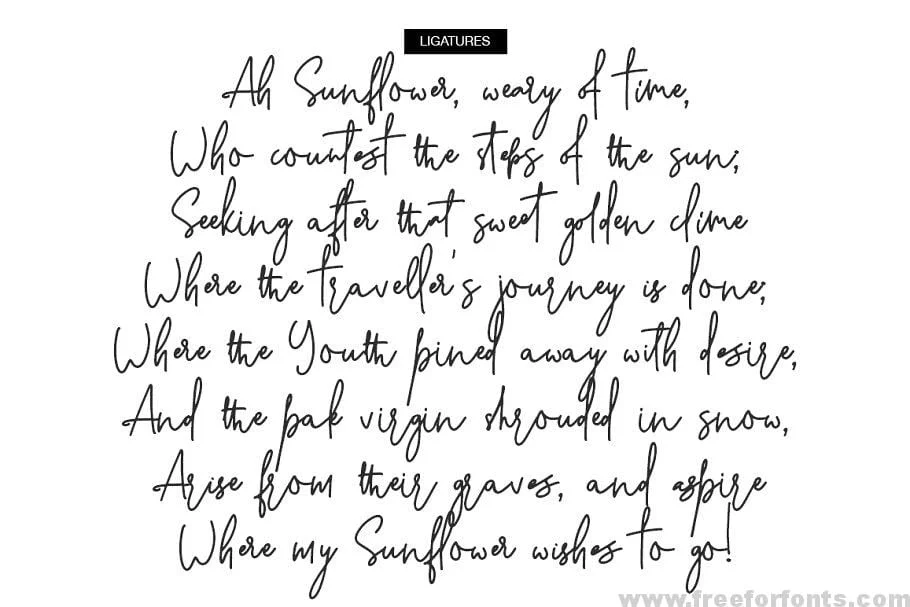 LIGATURES
Ah Sunflower, weary of time,
Who countest the steps of the sun;
Seeking after that sweet golden clime
Where the traveller's journey is done;
Where the Youth pined away with desire,
And the pale virgin shrouded in snow,
Arise from their graves, and aspire
Where my Sunflower wishes to go!
www.freeforfonts.com